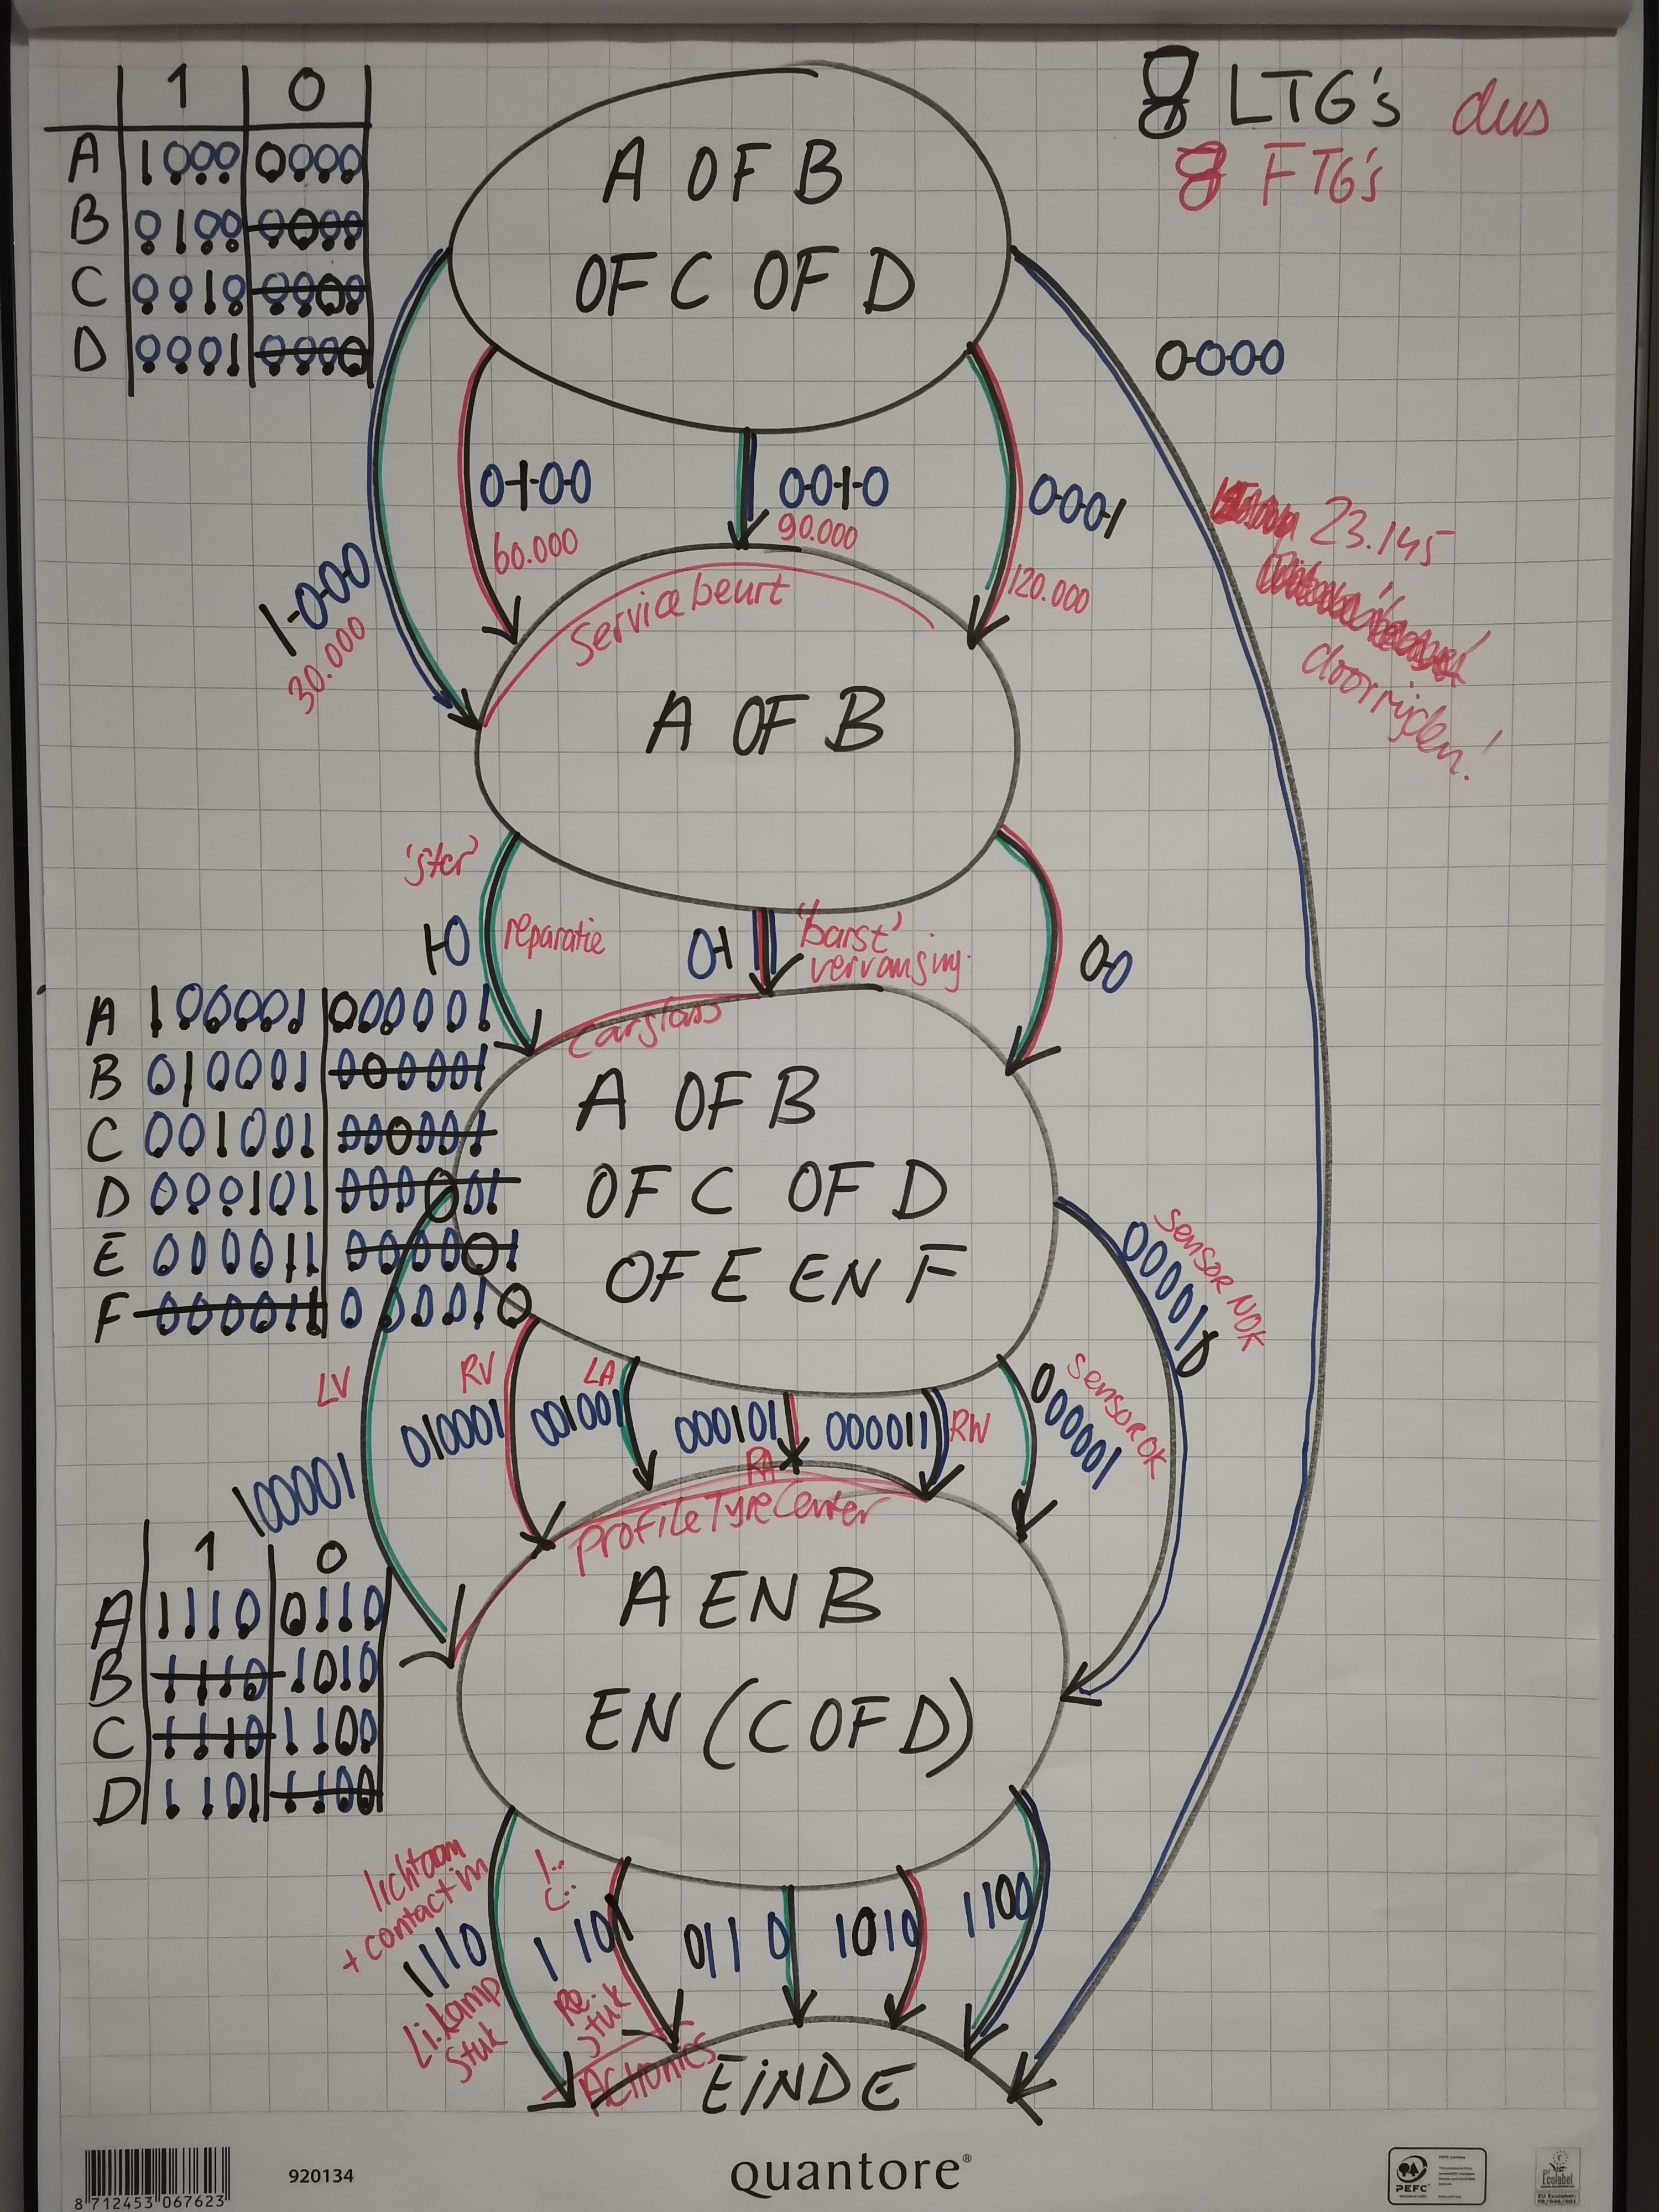 1 0
A 1000 0000
B 0100 0000
C 0010 0000
D 0001 0000
8 LTG's dus
8 FTG's
A OF B
OF C OF D
0000
23.145
doorrijden!
1-0-0-0
30.000
0-1-0-0
60.000
00-1-0
90.000
000-1
120.000
Servicebeurt
A OF B
'ster'
1-0
reparatie
0-1
'barst'
vervanging.
0-0
carglass
A 100001 000001
B 010001 000001
C 001001 000001
D 000101 000001
E 000011 000001
F 000011 000010
A OF B
OF C OF D
OF E EN F
LV
100001
RV
010001
LA
001001
000101
RA
000011
RW
000001
Sensor OK
000010
Sensor NOK
ProfileTyreCenter
1 0
A 1110 0110
B 1110 1010
C 1110 1100
D 1101 1100
A EN B
EN (C OF D)
lichtaan
+ contact in
1110
Li.lamp
stuk
l..
c..
1 10 1
Re.
stuk
0110
1010
1100
Actronics
EINDE
8 712453 067623
920134
quantore®
PEFC
EU Ecolabel